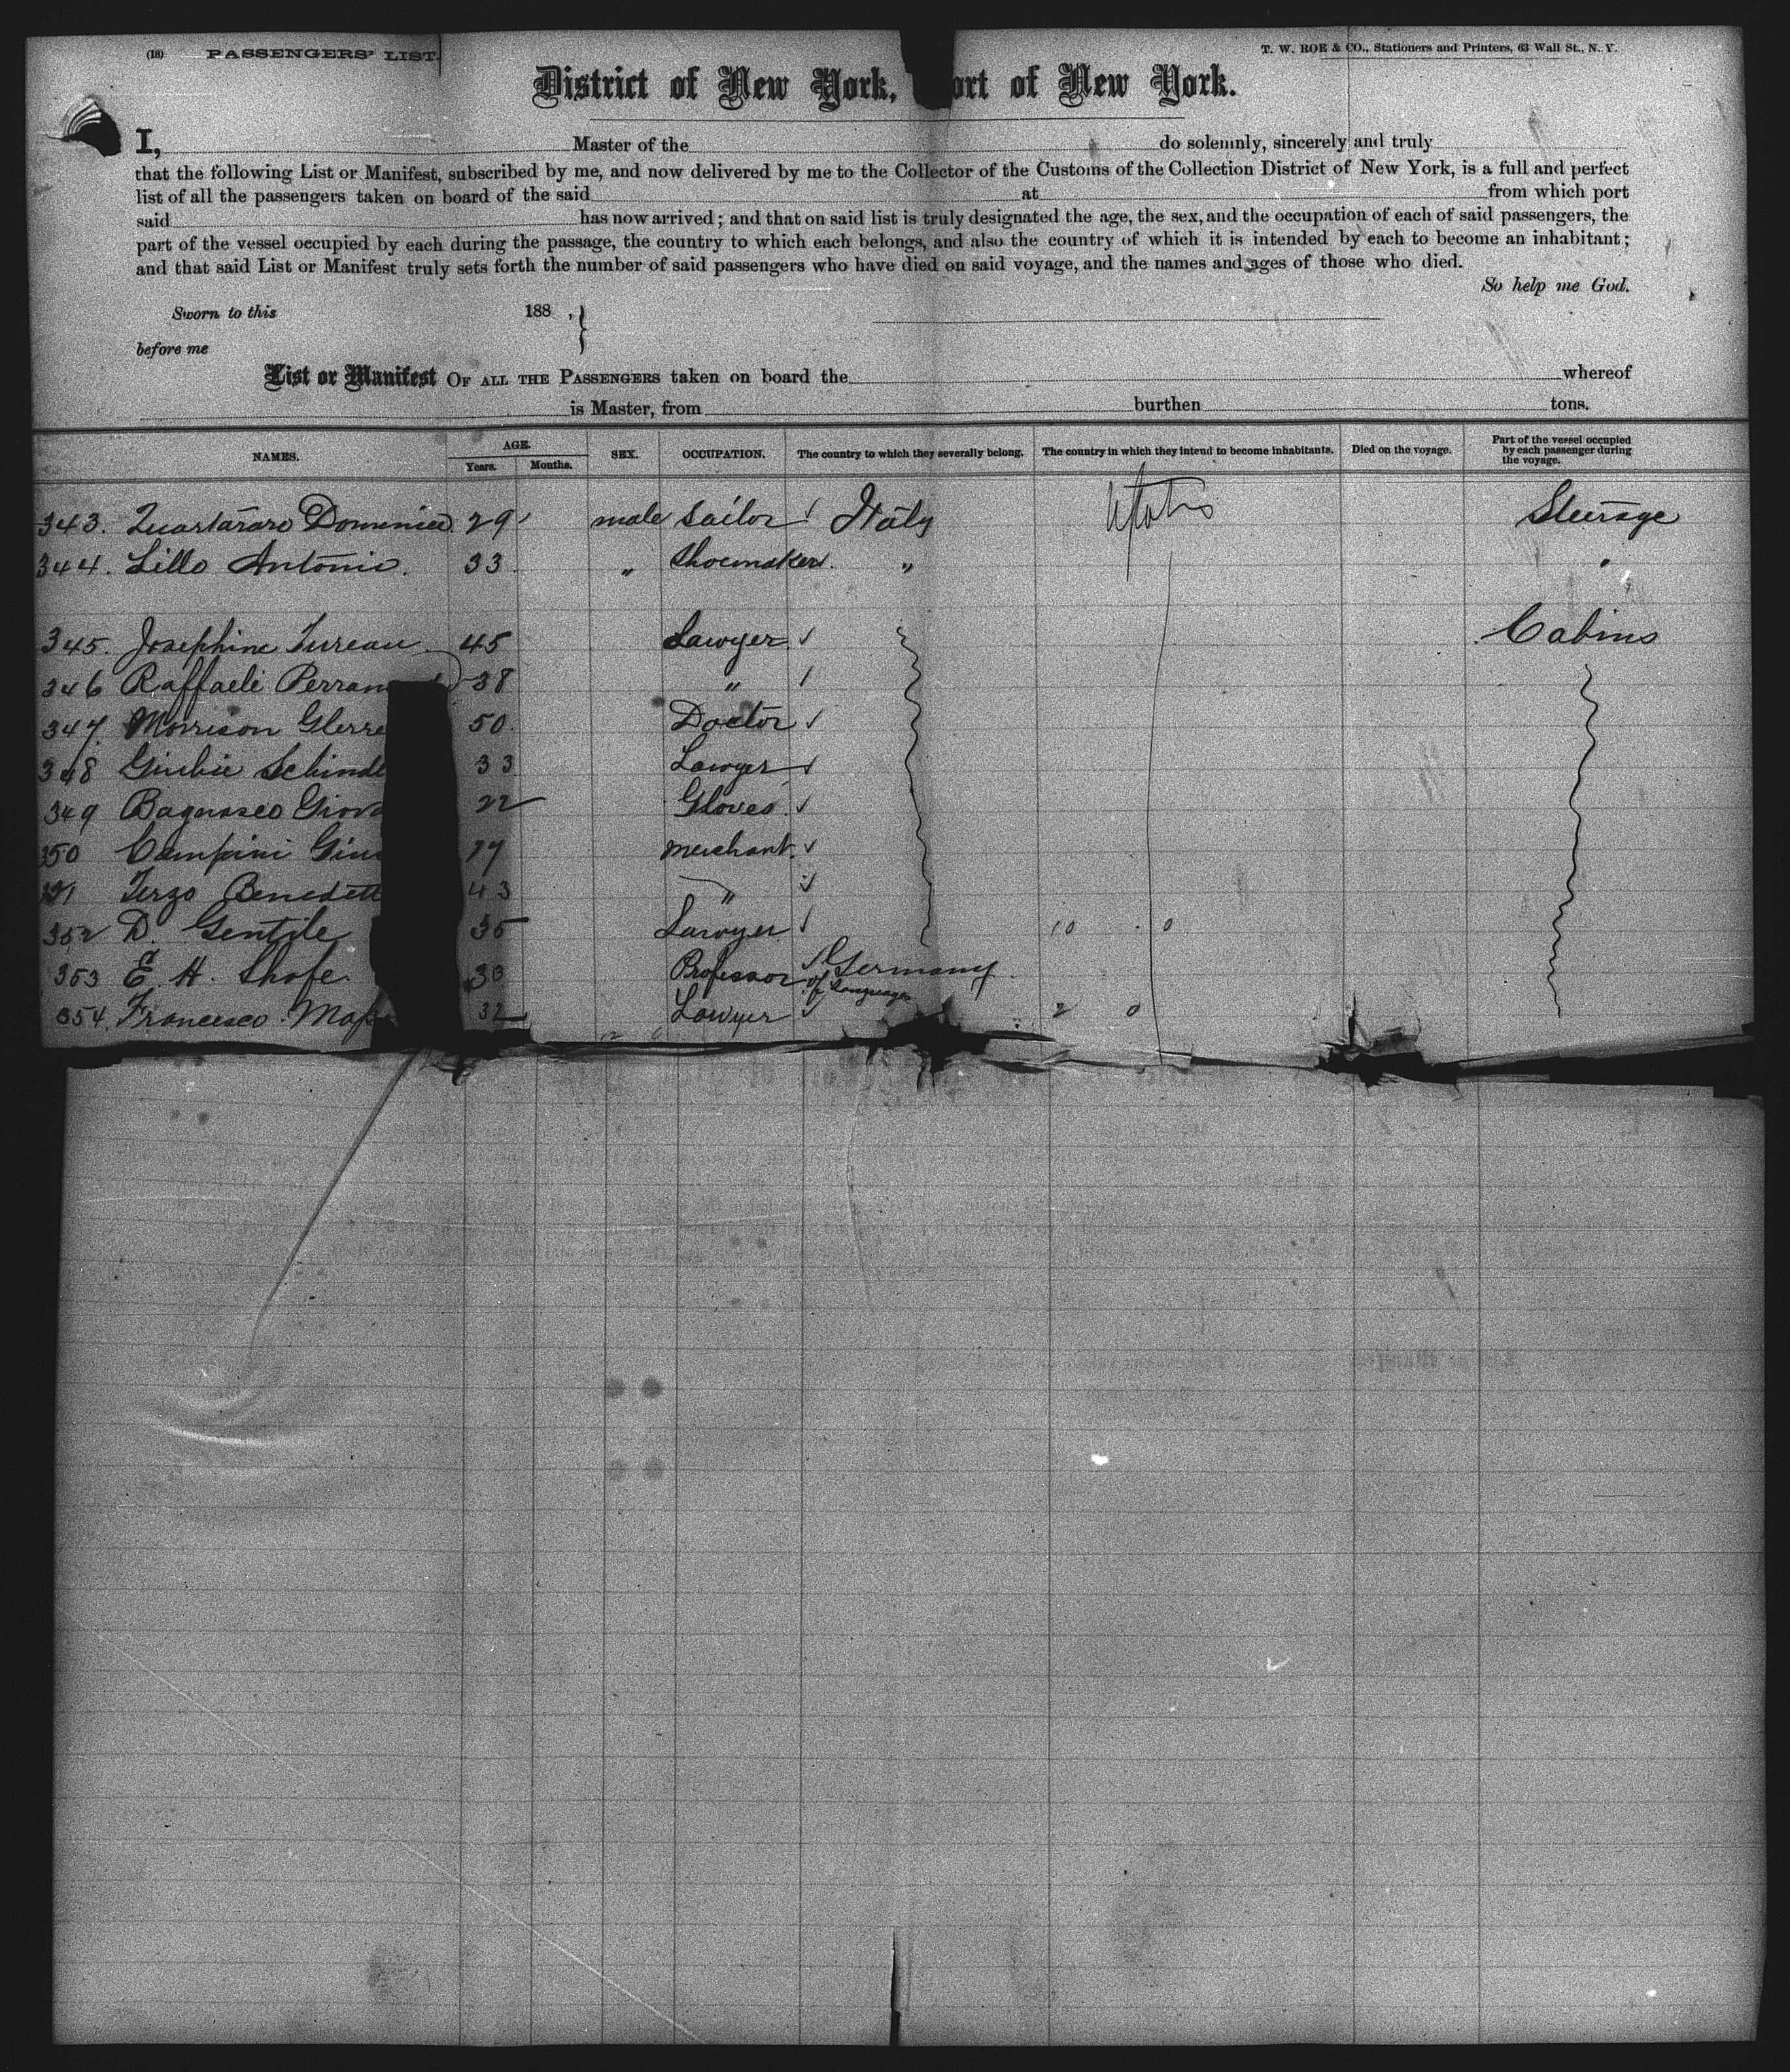 (18) PASSENGERS' LIST.
T. W. ROE & CO., Stationers and Printers, 63 Wall St., N. Y.
District of New York, ort of New York.
I, Master of the do solemnly, sincerely and truly
that the following List or Manifest, subscribed by me, and now delivered by me to the Collector of the Customs of the Collection District of New York, is a full and perfect
list of all the passengers taken on board of the said at from which port
said has now arrived; and that on said list is truly designated the age, the sex, and the occupation of each of said passengers, the
part of the vessel occupied by each during the passage, the country to which each belongs, and also the country of which it is intended by each to become an inhabitant;
and that said List or Manifest truly sets forth the number of said passengers who have died on said voyage, and the names and ages of those who died.
So help me God.
Sworn to this 188 ,
before me
List or Manifest OF ALL THE PASSENGERS taken on board the whereof
is Master, from burthen tons.
NAMES. AGE. Years. Months. SEX. OCCUPATION. The country to which they severally belong. The country in which they intend to become inhabitants. Died on the voyage. Part of the vessel occupied by each passenger during the voyage.
343. Quartararo Domenico 29 male Sailor Italy Steerage
344. Lillo Antonio. 33 " Shoemaker "
345. Josephine 45 Lawyer Cabins
346 Raffaele 38 "
347. Morrison 50 Doctor
348 Schindl 33 Lawyer
349 Bagnasco Giova 22 Gloves
350 Campini Gius merchant
Terzo Benedett 43 "
352 D. Gentile 35 Lawyer 10 0
353 E. H. 30 Professor of Languages Germany
354. Francesco 32 Lawyer 2 0